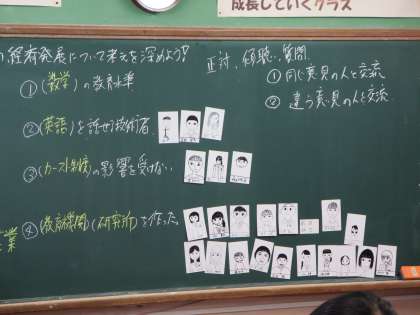 成長していくクラス
経済発展について考えを深めよう!
①(数学)の教育水準
②(英語)を話せる技術者
③(カースト制度)の影響を受けない
④(教育機関)(研究所)を作った。
業
正対、傾聴、質問
①同じ意見の人と交流
②違う意見の人と交流